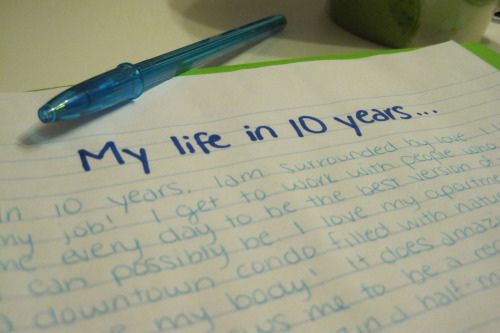 My life in 10 years...
In 10 years, I am surrounded by love. I
my job! I get to work with people who
me every day to be the best version of
I can possibly be. I love my apartme
a downtown condo filled with natu
my body! It does amaz
us me to be a
in a half-